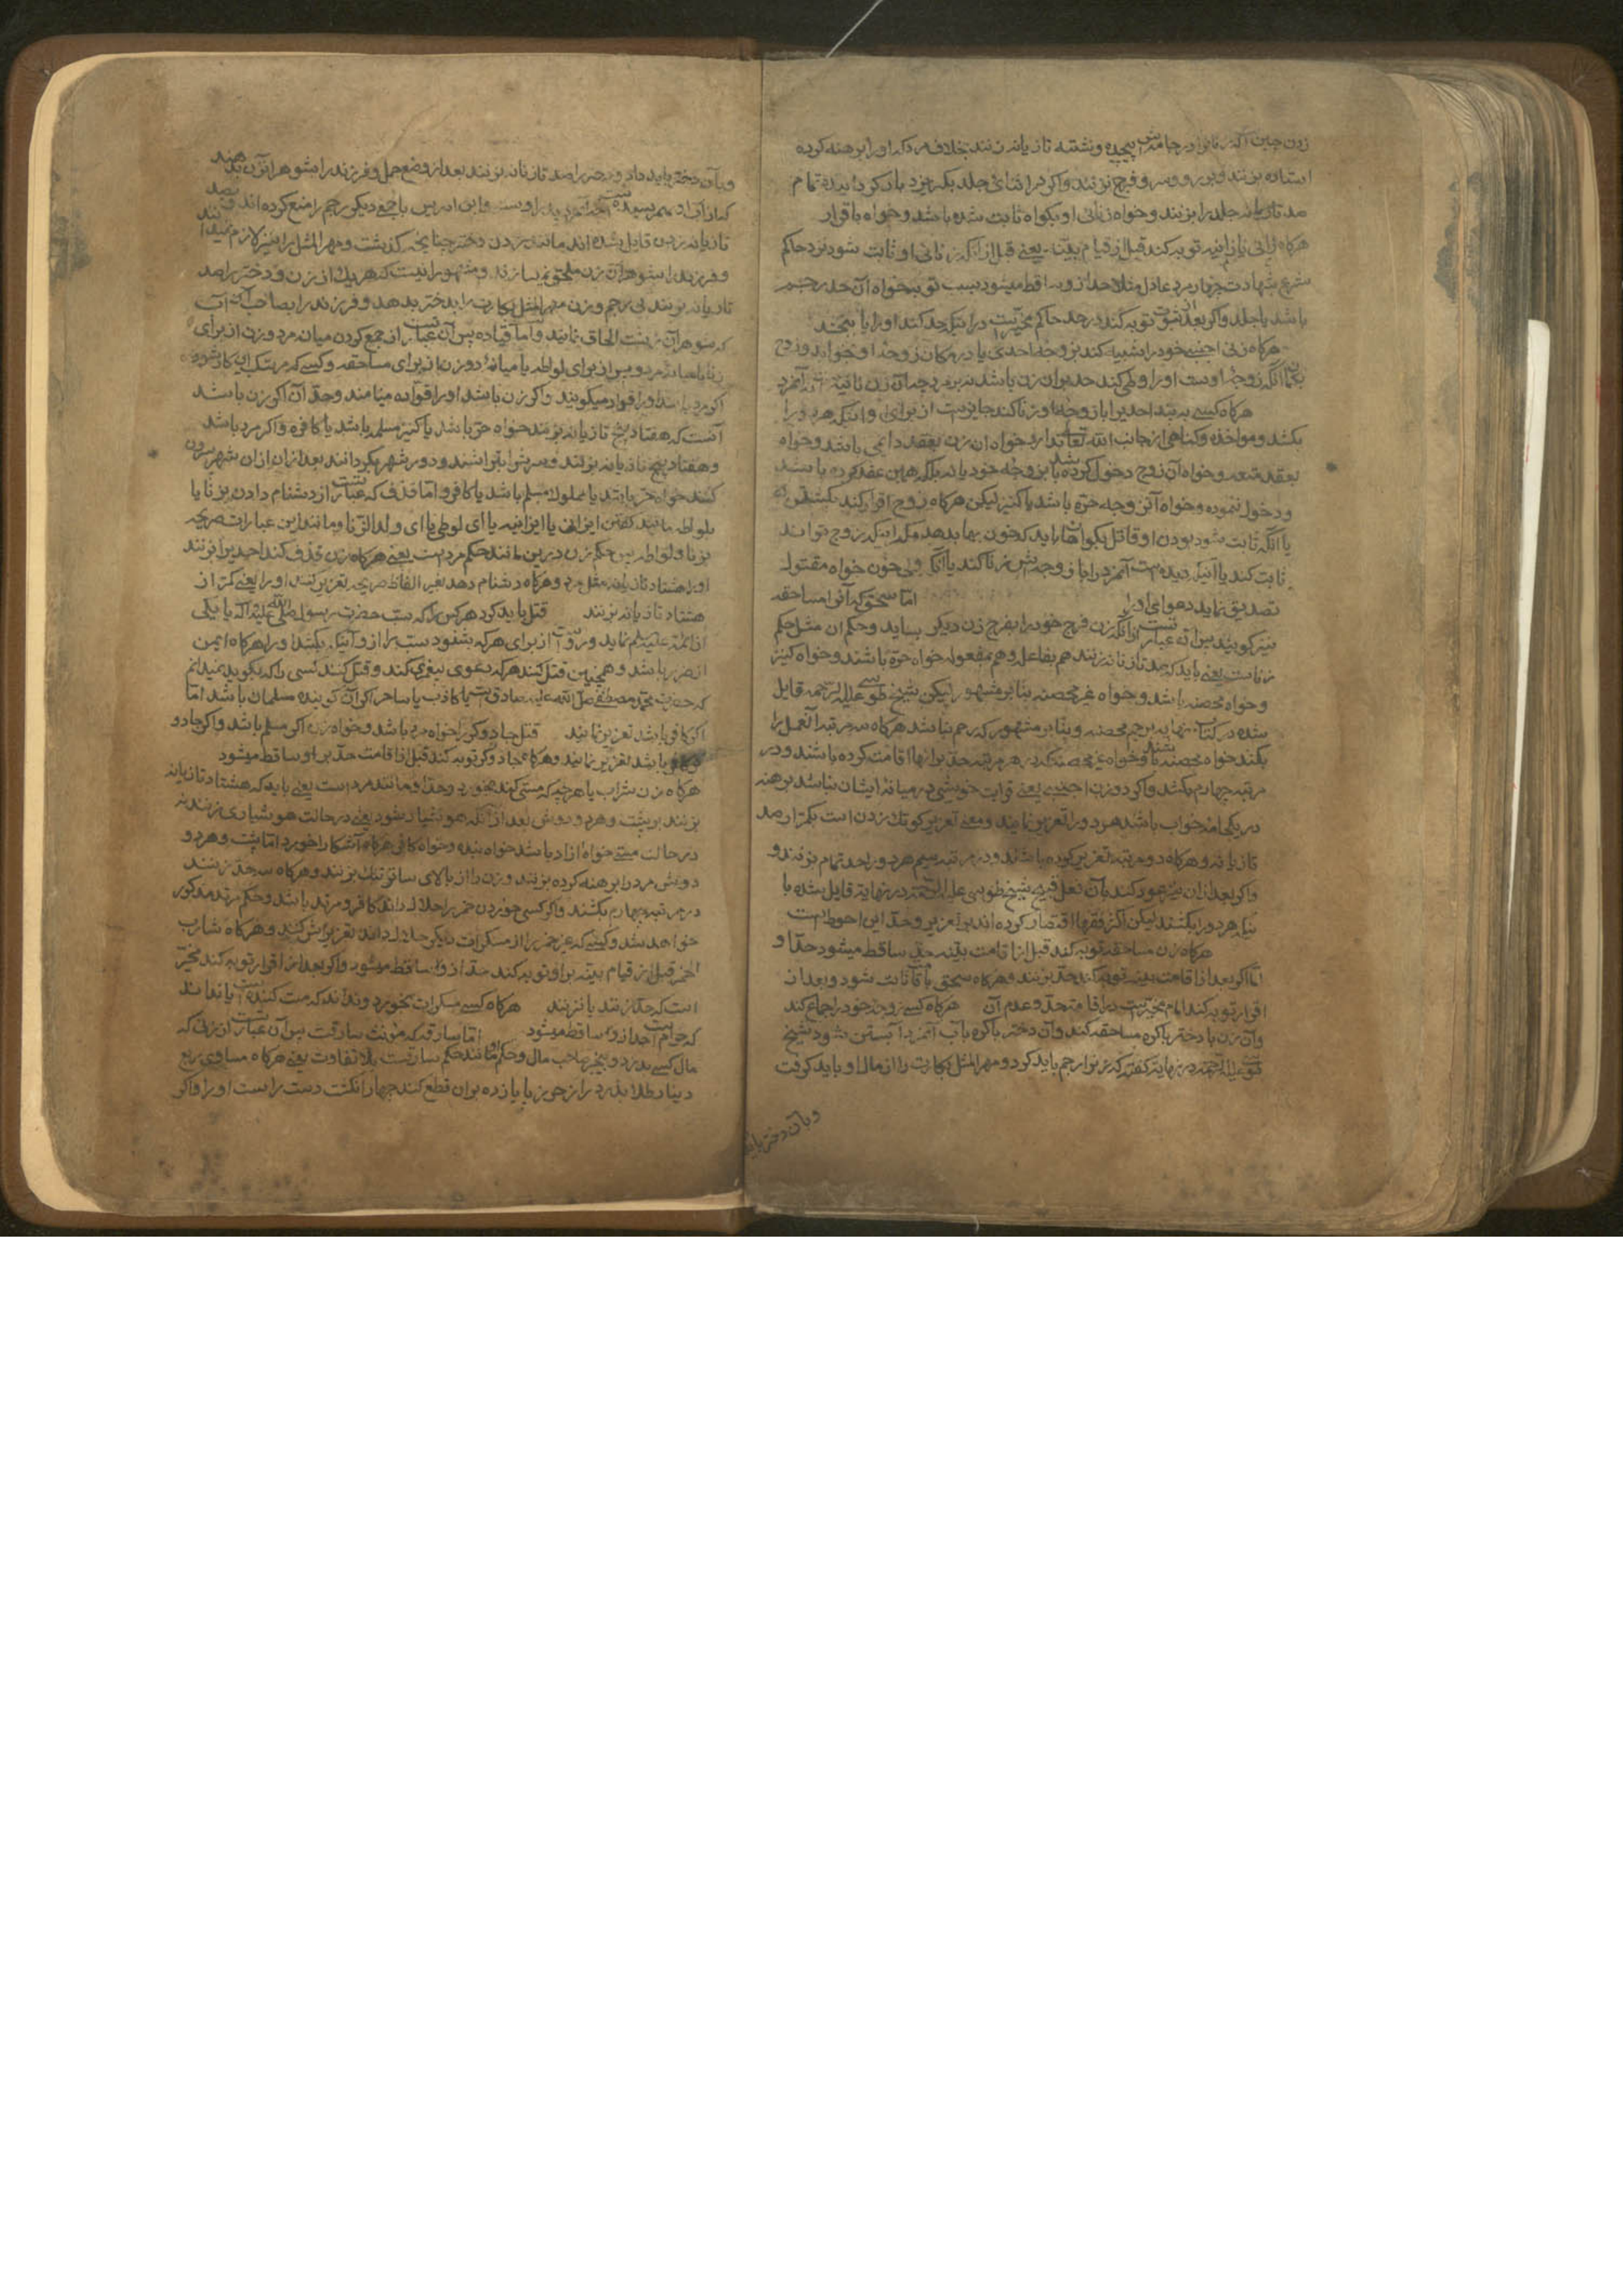 زدن چنین آنکه زنانرا در جامه‌اش پیچیده و نشسته تازیانه زنند بخلاف مرد که او را برهنه کرده
استاده بزنند و بر رو و سر و فرج نزنند و اگر در اثنای جلد بگریزد باز گردانیده تمام
صد تازیانه جلد را بزنند و خواه زنای او بگواه ثابت شده باشد و خواه باقرار
هرگاه زانی یا زانیه توبه کند قبل از قیام بینه یعنی قبل از آنکه زنای او ثابت شود نزد حاکم
شرع بشهادت چهار مرد عادل مثلا حد از وی ساقط میشود بسبب توبه خواه آن حد رجم
باشد یا جلد و اگر بعد از ثبوت توبه کند در حد حاکم مخیر نیست در اینکه حد کند او را یا ببخشد
هرگاه زنی اجنبیه خود را شبیه کند بزوجه احدی یا در مکان زوجه او بخوابد و زوج
بگمان آنکه زوجه اوست او را وطی کند حد بر آن زن باشد نه بر مرد چه آن زن زانیه است نه آنمرد
هرگاه کسی به بیند احدیرا با زوجه او زنا کند جایز است از برای او اینکه هر دو را
بکشد و مواخذه و گناهی از جانب الله تعالی ندارد خواه آن زن بعقد دایمی باشد و خواه
بعقد متعه و خواه آن زوج دخول کرده باشد بزوجه خود یا نه بلکه همین عقد کرده باشد
و دخول ننموده و خواه آن زوجه حره باشد یا کنیز لیکن هرگاه زوج اقرار کند بکشتن
یا آنکه ثابت شود بودن او قاتل بگواهان باید که خون بها بدهد مگر اینکه زوج تواند
ثابت کند یا اینکه دیده است آنمرد را با زوجه‌اش زنا کند یا آنکه ولی خون خواه مقتول
تصدیق نماید دعوای او را اما سحق که آنرا مساحقه
نیز گویند پس آن عبارتست از آنکه زن فرج خود را بفرج زن دیگر بساید و حکم آن مثل حکم
زناست یعنی باید که صد تازیانه زنند هم بفاعله و هم مفعوله خواه حره باشند و خواه کنیز
و خواه محصنه باشد و خواه غیر محصنه بنا بر مشهور لیکن شیخ طوسی علیه الرحمه قایل
شده در کتاب نهایه برجم محصنه و بنا بر مشهور که رجم نباشد هرگاه سه مرتبه آنعمل را
بکنند خواه محصنه باشند و خواه غیر محصنه که در هر مرتبه حد بر آنها اقامت کرده باشند و در
مرتبه چهارم بکشند و اگر دو زن اجنبیه یعنی قرابت خویشی در میانه ایشان نباشد برهنه
در یکجامه خواب باشند هر دو را تعزیر نمایند و معنی تعزیر کوتک زدن است بکمتر از صد
تازیانه و هرگاه دو مرتبه تعزیر کرده باشند و در مرتبه سیم هر دو را حد تمام بزنند و
و اگر بعد از آن نیز عود کنند بآن فعل قبیح شیخ طوسی علیه الرحمه در نهایه قایل شده با
ینکه هر دو را بکشند لیکن اکثر فقها اقتصار کرده‌اند بر تعزیر و حد این احوط است
هرگاه زن مساحقه توبه کند قبل از اقامت بینه حد ساقط میشود حد او
اما اگر بعد از اقامت بینه توبه کند حد بزنند و هرگاه سحق باقرار ثابت شود و بعد از
اقرار توبه کند امام مخیر است در اقامت حد و عدم آن هرگاه کسی زوجه خود را جماع کند
و آن زن با دختر باکره مساحقه کند و آن دختر باکره بآب آنمرد آبستن شود شیخ
طوسی علیه الرحمه در نهایه گفته که زن را رجم باید کرد و مهر المثل بکارت را از مال او باید گرفت
و بآن دختر باید
و بآن دختر باید داد و دختر را صد تازیانه بزنند بعد از وضع حمل و فرزند را بشوهر آنزن بدهند
که از آب او بهمرسیده است و ابن ادریس با جمع دیگر رجم را منع کرده‌اند و بصد
تازیانه زدن قایل شده‌اند مانند زدن دختر چنانچه گذشت و مهر المثل را نیز لازم نمیدانند
و فرزند را بشوهر آن زن ملحق نمیسازند و مشهور اینست که هر یک از زن و دختر را صد
تازیانه بزنند بی رجم و زن مهر المثل بکارت را بدختر بدهد و فرزند را بصاحب آب
که شوهر آن زنست الحاق نمایند و اما قیاده پس آن عبارتست از جمع کردن میان مرد و زن از برای
زنا یا میانه مرد و پسر از برای لواطه یا میانه دو زن از برای مساحقه و کسیکه مرتکب این کار شود
اگر مرد باشد او را قواد میگویند و اگر زن باشد او را قواده مینامند و حد آن اگر زن باشد
آنست که هفتاد و پنج تازیانه بزنند خواه حره باشد یا کنیز مسلمه باشد یا کافره و اگر مرد باشد
و هفتاد و پنج تازیانه بزنند و سرش بتراشند و دور شهر بگردانند بعد از آن از آن شهر بیرون
کنند خواه حر باشد یا مملوک مسلم باشد یا کافر و اما قذف که عبارتست از دشنام دادن بزنا یا
بلواطه مانند گفتن ای زانی یا ای زانیه یا ای لوطی یا ای ولد الزنا و مانند این عبارات صریحه
بزنا و لواطه پس حکم زن درین مانند حکم مرد است یعنی هرگاه زن قذف کند احدیرا بزنند
او را هشتاد تازیانه مثل مرد و هرگاه دشنام دهد بغیر الفاظ صریحه تعزیر کنند او را یعنی کمتر از
هشتاد تازیانه بزنند قتل باید کرد هر کس را که سب حضرت رسول صلی الله علیه و آله یا یکی
از ائمه علیهم السلام نماید و رواست از برای هر که بشنود سب را از او آنکه بکشد او را هرگاه ایمن
از ضرر باشد و همچنین قتل کنند هر که دعوی پیغمبری کند و قتل کنند کسی را که بگوید نمیدانم
که حضرت محمد مصطفی صلی الله علیه صادقست یا کاذب یا ساحر اگر آن گوینده مسلمان باشد اما
اگر کافر باشد تعزیر نمایند قتل جادوگر را خواه مرد باشد و خواه زن اگر مسلم باشد و اگر جادو
گر کافر باشد تعزیر نمایند و هرگاه جادوگر توبه کند قبل از اقامت حد بر او ساقط میشود
هرگاه زن شراب یا هر چیز که مستی کند بخورد حد او مانند مرد است یعنی باید که هشتاد تازیانه
بزنند بر پشت و هر دو دوش بعد از آنکه هوشیار شود یعنی در حالت هوشیاری بزنند نه
در حالت مستی خواه آزاد باشد خواه بنده و خواه کافر هرگاه آشکارا خورد اما پشت و هر دو
دوش مرد را برهنه کرده بزنند و زن را از بالای ساتر تنک بزنند و هرگاه سه حد زنند
در مرتبه چهارم بکشند و اگر کسی خوردن خمر را حلال داند کافر و مرتد باشد و حکم مرتد مذکور
خواهد شد و کسی که غیر خمر را از مسکرات دیگر حلال داند تعزیرش کنند و هرگاه شارب
الخمر قبل از قیام بینه بر او توبه کند حد از او ساقط میشود و اگر بعد از اقرار توبه کند مخیر
است که حد زنند یا نزنند هرگاه کسی مسکرات بخورد و نداند که مست کننده است یا نداند
که حرام است حد از وی ساقط میشود اما سارقه که مونث سارقست پس آن عبارتست از زنی که
مال کسی بدزدد و بیخبر صاحب مال و حکم او مانند حکم سارقست بلا تفاوت یعنی هرگاه مساوی ربع
دینار طلا بدزدد از حرز یا زیاده بر آن قطع کنند چهار انگشت دست راست او را و اگر